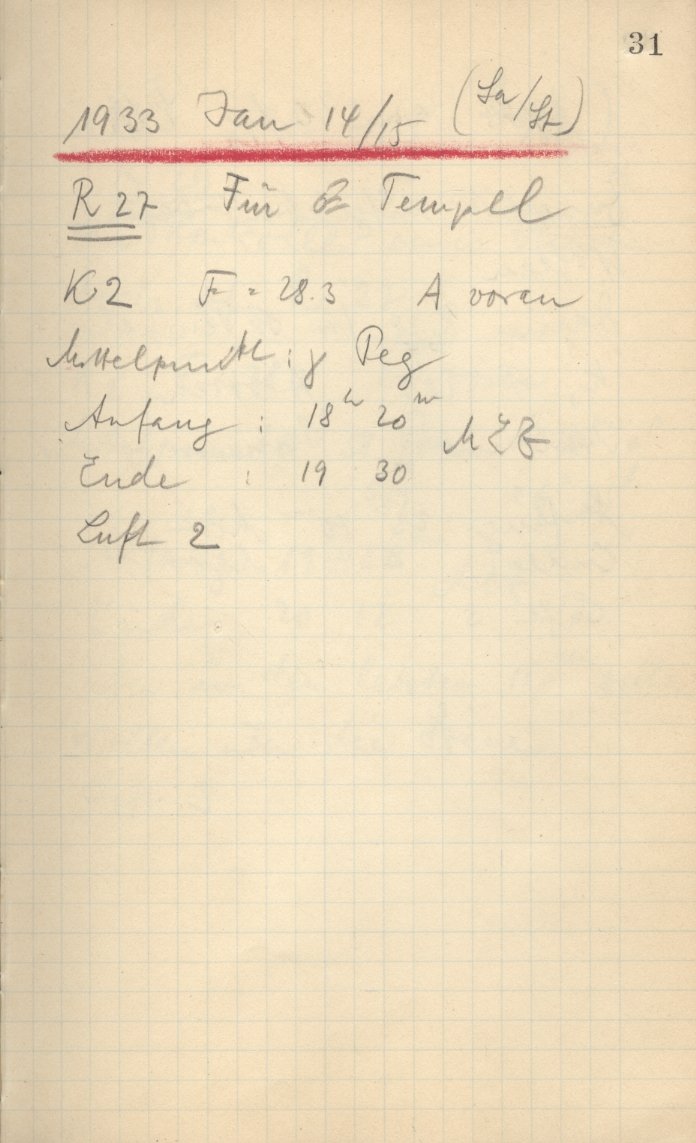 31
1933 Jan 14/15 (Sa/St)
R 27 Für Tempel
K2 F = 28.3 A voran
Mittelpunkt : γ Peg
Anfang : 18h 20m MEZ
Ende : 19 30
Luft 2